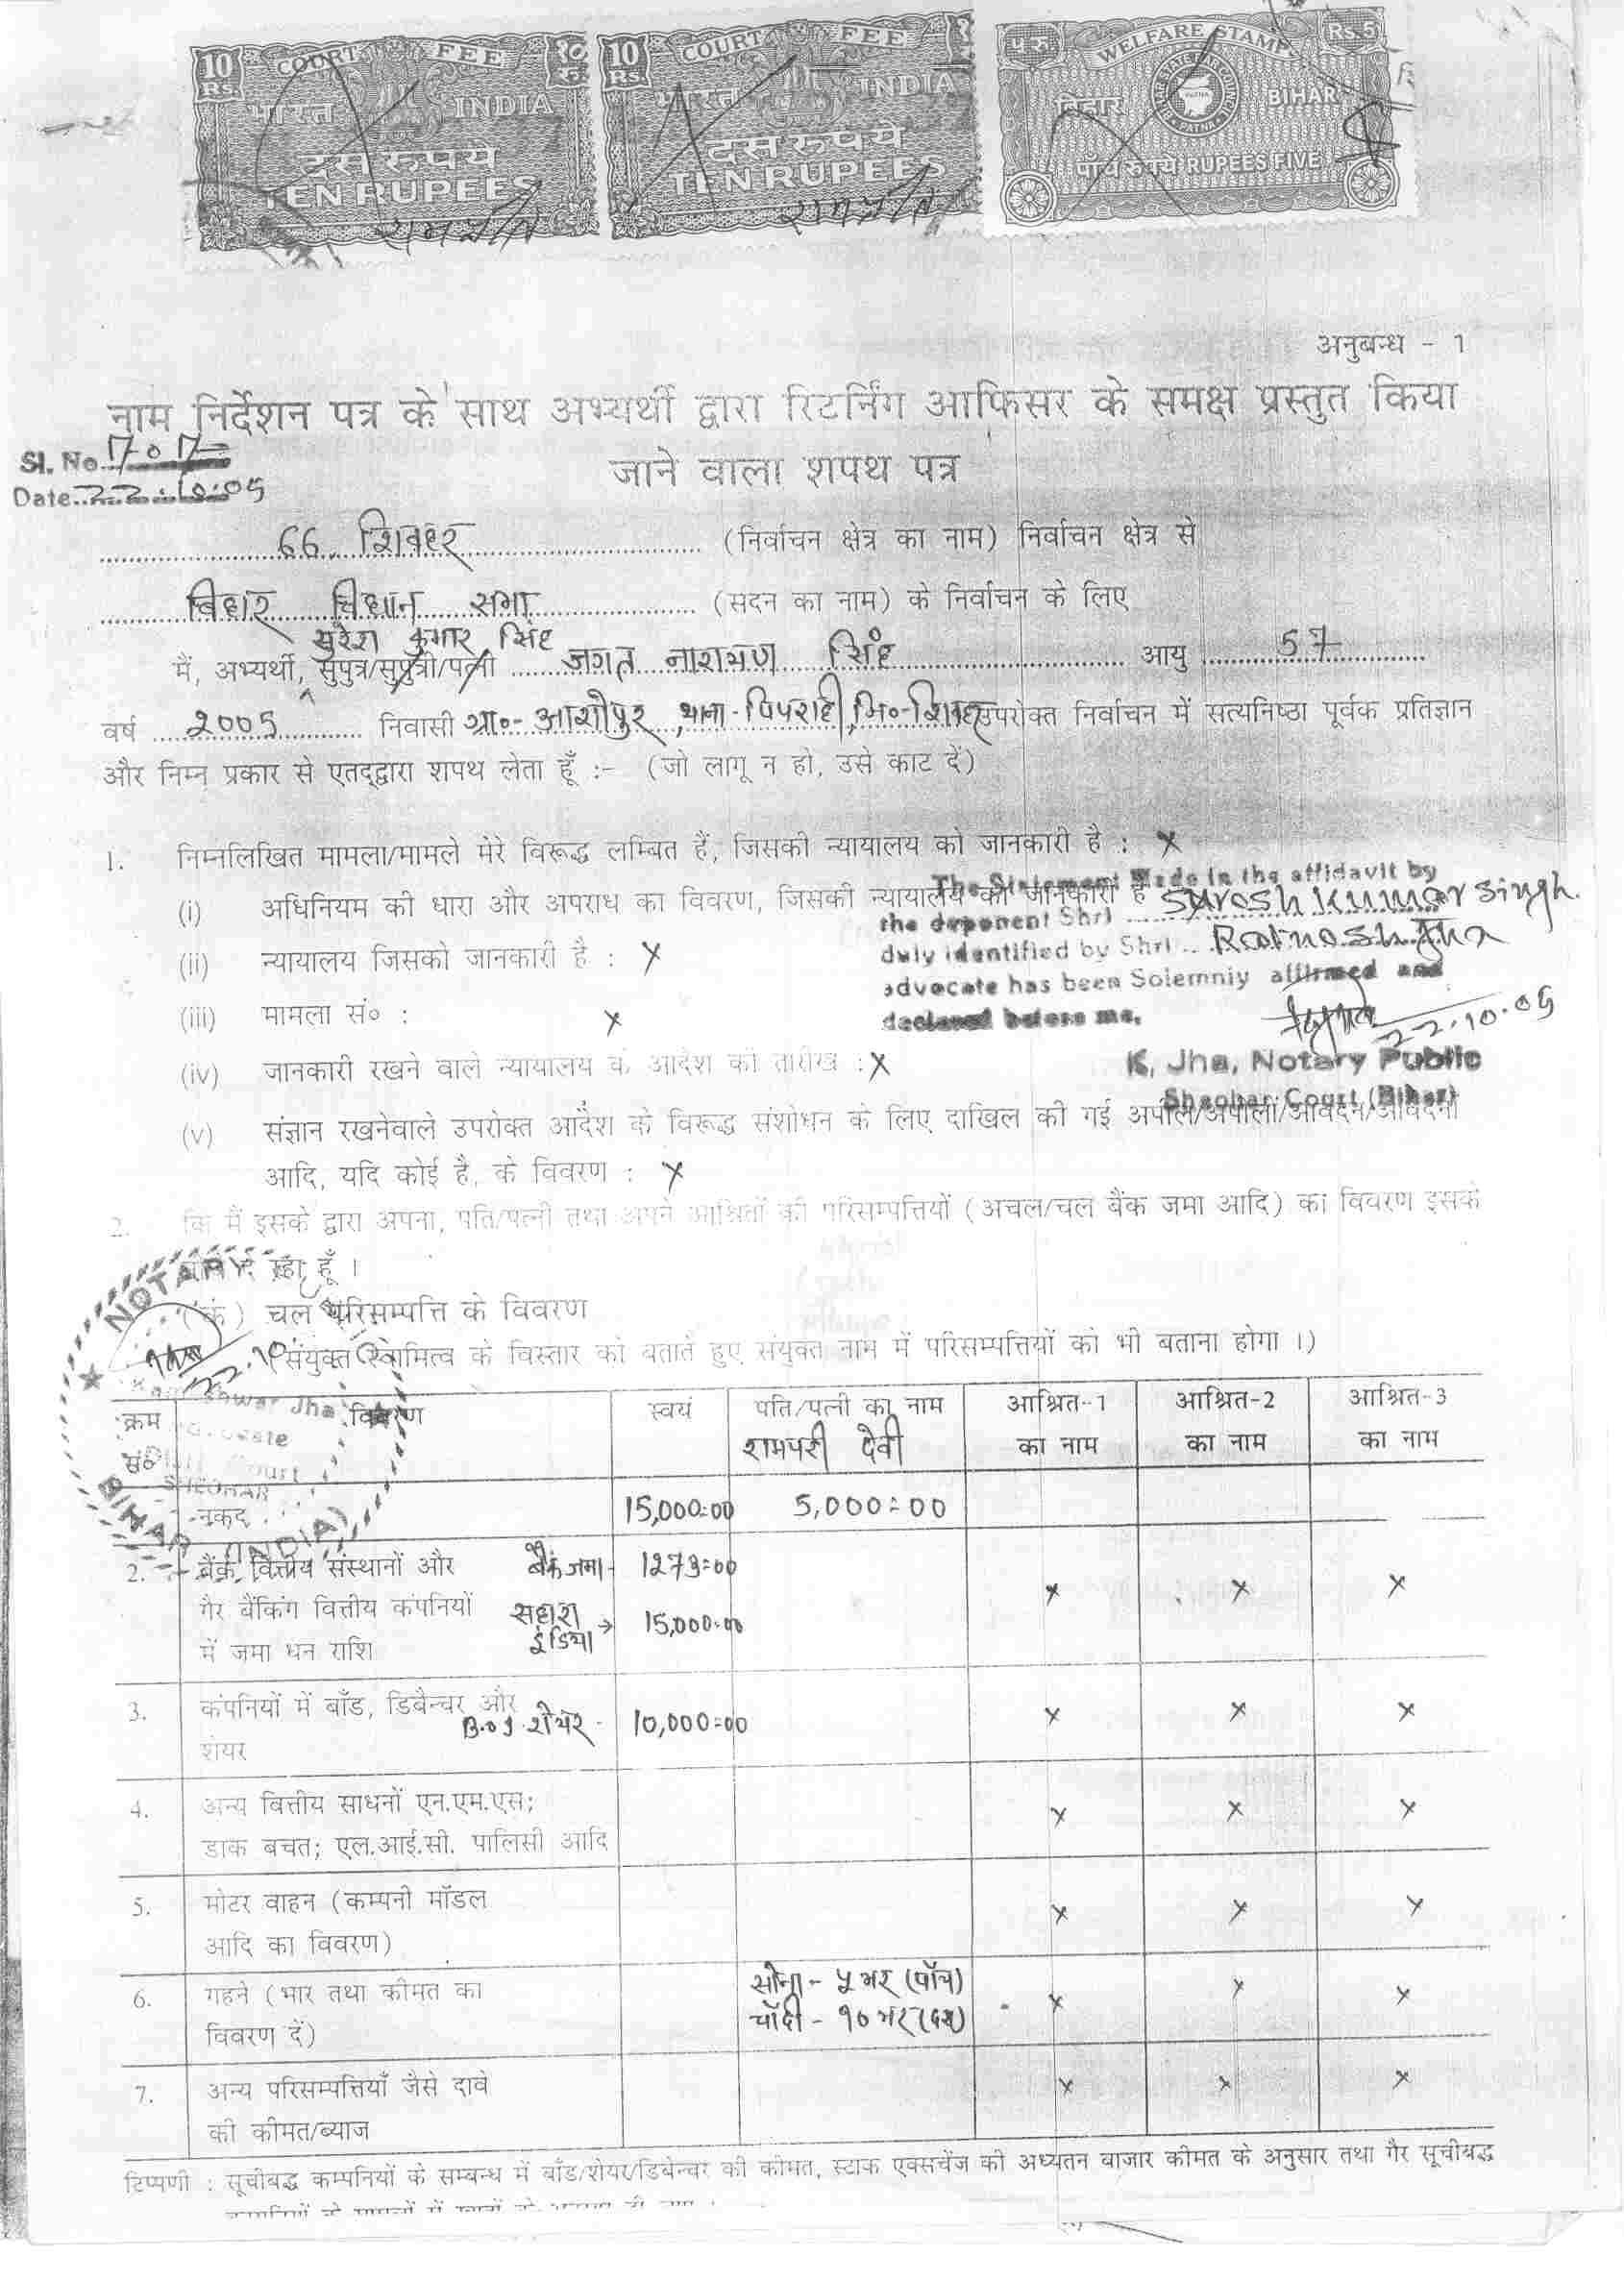 10 Rs. COURT FEE १० रु. 10 Rs. COURT FEE
भारत INDIA भारत INDIA
दस रुपये दस रुपये
TEN RUPEES TEN RUPEES
५ रु WELFARE STAMP Rs.5
बिहार BIHAR
PATNA
पाँच रुपये RUPEES FIVE
अनुबन्ध - 1
नाम निर्देशन पत्र के साथ अभ्यर्थी द्वारा रिटर्निंग आफिसर के समक्ष प्रस्तुत किया
जाने वाला शपथ पत्र
Sl. No
Date 22.10.05
66 शिवहर (निर्वाचन क्षेत्र का नाम) निर्वाचन क्षेत्र से
बिहार विधान सभा (सदन का नाम) के निर्वाचन के लिए
सुरेश कुमार सिंह
मैं, अभ्यर्थी, सुपुत्र/सुपुत्री/पत्नी जगत नारायण सिंह आयु 57
वर्ष 2005 निवासी ग्रा०- आशोपुर, थाना- पिपराही, जि०- शिवहर उपरोक्त निर्वाचन में सत्यनिष्ठा पूर्वक प्रतिज्ञान
और निम्न प्रकार से एतद्द्वारा शपथ लेता हूँ :- (जो लागू न हो, उसे काट दें)
1. निम्नलिखित मामला/मामले मेरे विरूद्ध लम्बित हैं, जिसकी न्यायालय को जानकारी है : x
(i) अधिनियम की धारा और अपराध का विवरण, जिसकी न्यायालय को जानकारी है
(ii) न्यायालय जिसको जानकारी है : x
(iii) मामला सं० : x
(iv) जानकारी रखने वाले न्यायालय के आदेश की तारीख : x
The Statement Made in the affidavit by
the deponent Shri Suresh Kumar Singh
duly identified by Shri Ratnesh Jha
advocate has been Solemnly affirmed and
declared before me.
22.10.05
K. Jha, Notary Public
Sheohar Court (Bihar)
(v) संज्ञान रखनेवाले उपरोक्त आदेश के विरूद्ध संशोधन के लिए दाखिल की गई अपील/अपीलों/आवेदन/आवेदनों
आदि, यदि कोई है, के विवरण : x
2. कि मैं इसके द्वारा अपना, पति/पत्नी तथा अपने आश्रितों की परिसम्पत्तियों (अचल/चल बैंक जमा आदि) का विवरण इसके
दे रहा हूँ ।
(क) चल परिसम्पत्ति के विवरण
(संयुक्त स्वामित्व के विस्तार को बताते हुए संयुक्त नाम में परिसम्पत्तियों को भी बताना होगा ।)
NOTARY
Jha
BIHAR (INDIA)
क्रम सं० विवरण स्वयं पति/पत्नी का नाम रामपरी देवी आश्रित-1 का नाम आश्रित-2 का नाम आश्रित-3 का नाम
नकद 15,000=00 5,000=00
2. बैंक, वित्तीय संस्थानों और बैंक जमा - 1273=00 x x x
गैर बैंकिंग वित्तीय कंपनियों सहारा इंडिया → 15,000=00
में जमा धन राशि
3. कंपनियों में बाँड, डिबैन्चर और B.O.I शेयर - 10,000=00 x x x
शेयर
4. अन्य वित्तीय साधनों एन.एम.एस; x x x
डाक बचत; एल.आई.सी. पालिसी आदि
5. मोटर वाहन (कम्पनी मॉडल x x x
आदि का विवरण)
6. गहने (भार तथा कीमत का सोना - ५ भर (पाँच) x x x
विवरण दें) चाँदी - १० भर (दस)
7. अन्य परिसम्पत्तियाँ जैसे दावे x x x
की कीमत/ब्याज
टिप्पणी : सूचीबद्ध कम्पनियों के सम्बन्ध में बाँड/शेयर/डिबेन्चर की कीमत, स्टाक एक्सचेंज की अध्यतन बाजार कीमत के अनुसार तथा गैर सूचीबद्ध